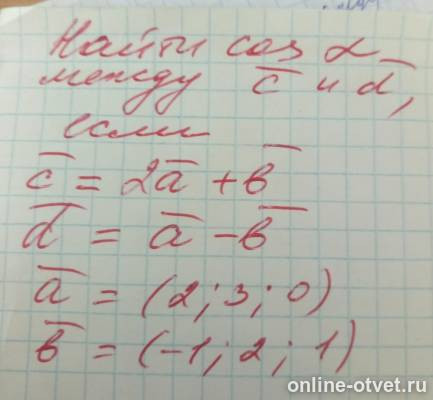 Найти cos α
между c̅ и d̅,
если
c̅ = 2a̅ + b̅
d̅ = a̅ - b̅
a̅ = (2; 3; 0)
b̅ = (-1; 2; 1)
online-otvet.ru